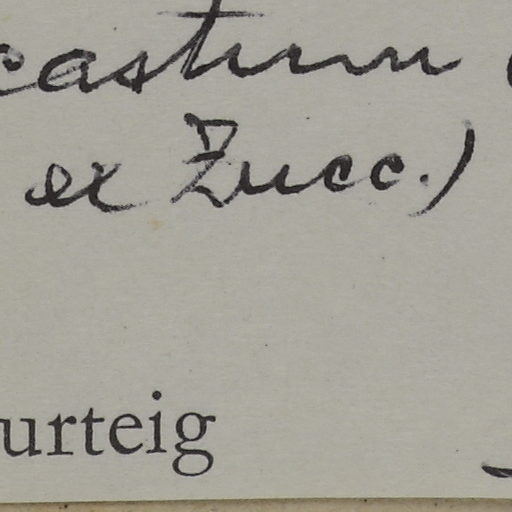 castrum (
ex Zucc.)
urteig